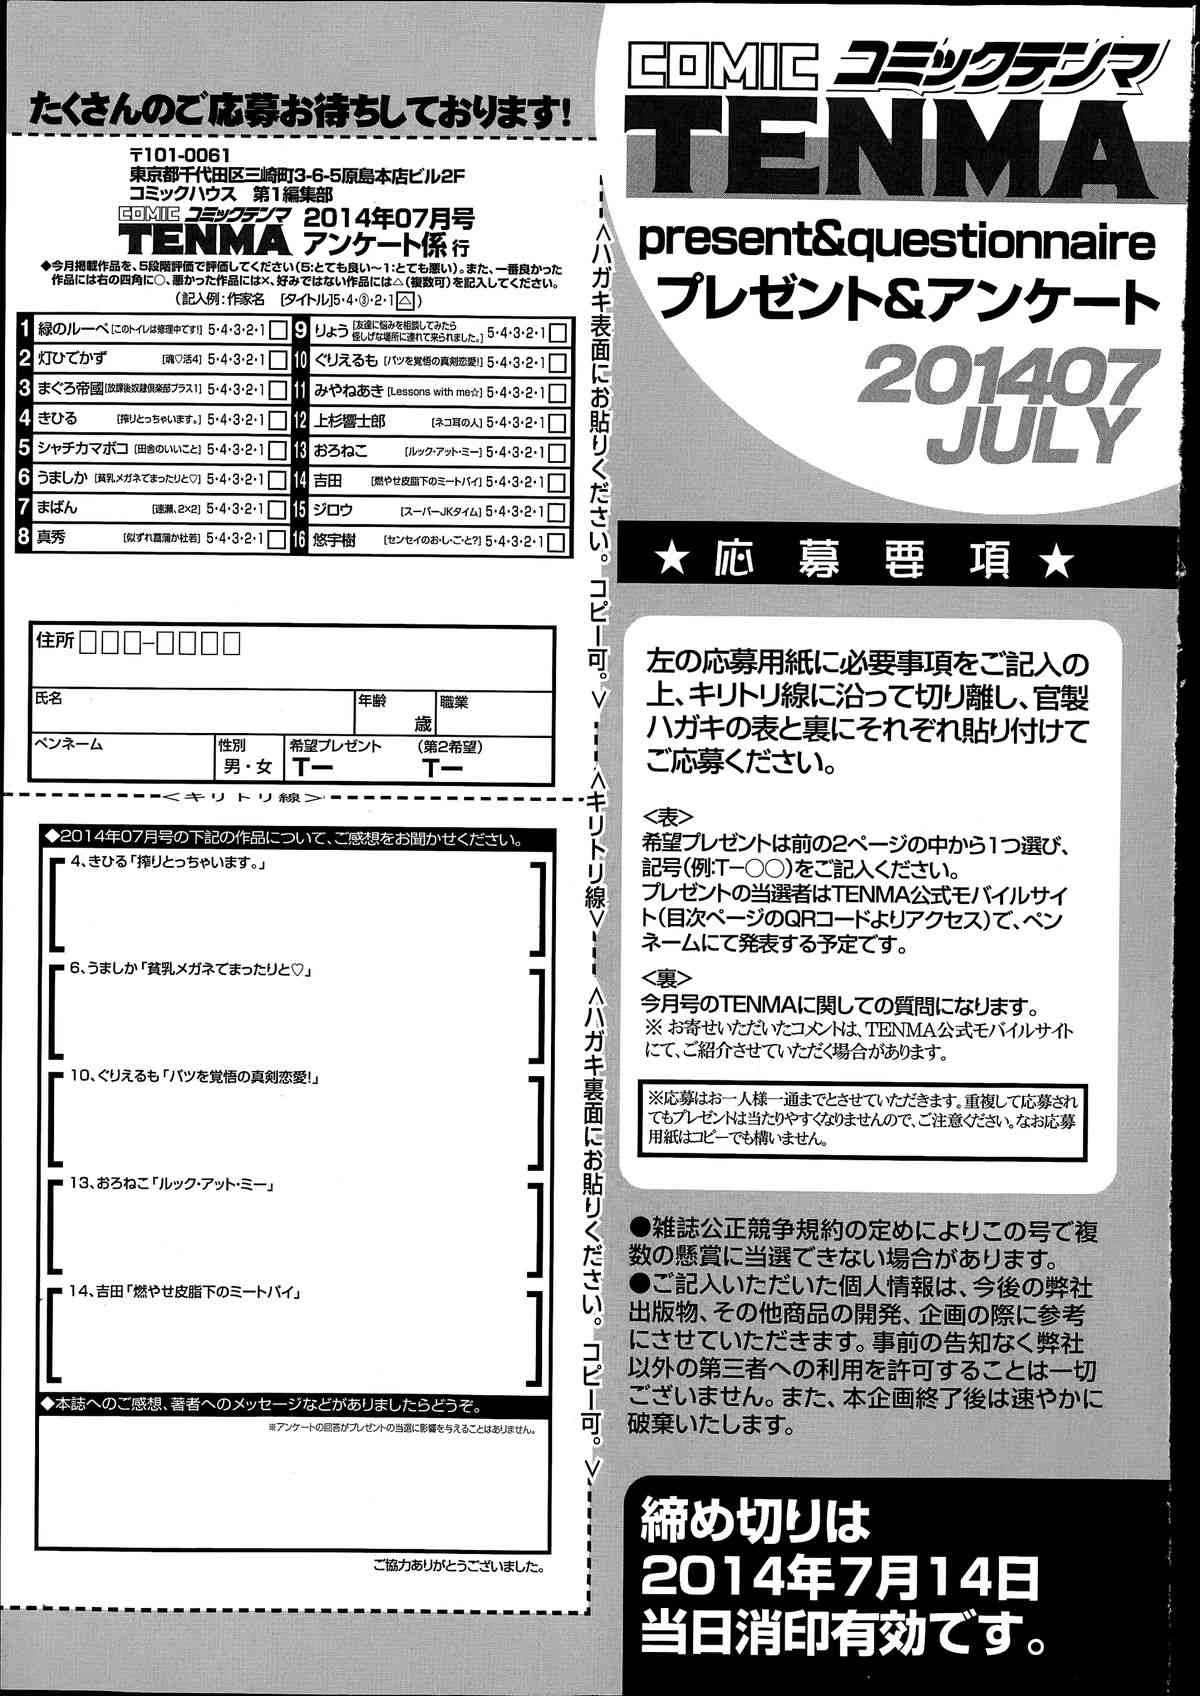 COMIC コミックテンマ
TENMA
present&questionnaire
プレゼント&アンケート
201407
JULY
★応募要項★
左の応募用紙に必要事項をご記入の
上、キリトリ線に沿って切り離し、官製
ハガキの表と裏にそれぞれ貼り付けて
ご応募ください。
<表>
希望プレゼントは前の2ページの中から1つ選び、
記号(例:T−○○)をご記入ください。
プレゼントの当選者はTENMA公式モバイルサイ
ト(目次ページのQRコードよりアクセス)で、ペン
ネームにて発表する予定です。
<裏>
今月号のTENMAに関しての質問になります。
※ お寄せいただいたコメントは、TENMA公式モバイルサイト
にて、ご紹介させていただく場合があります。
※応募はお一人様一通までとさせていただきます。重複して応募され
てもプレゼントは当たりやすくなりませんので、ご注意ください。なお応募
用紙はコピーでも構いません。
●雑誌公正競争規約の定めによりこの号で複
数の懸賞に当選できない場合があります。
●ご記入いただいた個人情報は、今後の弊社
出版物、その他商品の開発、企画の際に参考
にさせていただきます。事前の告知なく弊社
以外の第三者への利用を許可することは一切
ございません。また、本企画終了後は速やかに
破棄いたします。
締め切りは
2014年7月14日
当日消印有効です。
たくさんのご応募お待ちしております!
〒101-0061
東京都千代田区三崎町3-6-5原島本店ビル2F
コミックハウス 第1編集部
COMIC コミックテンマ
TENMA
2014年07月号
アンケート係 行
◆今月掲載作品を、5段階評価で評価してください(5:とても良い〜1:とても悪い)。また、一番良かった
作品には右の四角に○、悪かった作品には×、好みではない作品には△(複数可)を記入してください。
(記入例:作家名 [タイトル]5・4・③・2・1△)
1 緑のルーペ[このトイレは修理中です!] 5・4・3・2・1□
2 灯ひでかず [魂♡活4] 5・4・3・2・1□
3 まぐろ帝國[放課後奴隷倶楽部プラス1] 5・4・3・2・1□
4 きひる [搾りとっちゃいます。] 5・4・3・2・1□
5 シャチカマボコ [田舎のいいこと] 5・4・3・2・1□
6 うましか [貧乳メガネでまったりと♡] 5・4・3・2・1□
7 まばん [速瀬、2×2] 5・4・3・2・1□
8 真秀 [似ずれ菖蒲か杜若] 5・4・3・2・1□
9 りょう [友達に悩みを相談してみたら
怪しげな場所に連れて来られました。] 5・4・3・2・1□
10 ぐりえるも [バツを覚悟の真剣恋愛!] 5・4・3・2・1□
11 みやねあき [Lessons with me☆] 5・4・3・2・1□
12 上杉響士郎 [ネコ耳の人] 5・4・3・2・1□
13 おろねこ [ルック・アット・ミー] 5・4・3・2・1□
14 吉田 [燃やせ皮脂下のミートパイ] 5・4・3・2・1□
15 ジロウ [スーパーJKタイム] 5・4・3・2・1□
16 悠宇樹 [センセイのお・し・ご・と?] 5・4・3・2・1□
住所□□□−□□□□
氏名
年齢
歳
職業
ペンネーム
性別
男・女
希望プレゼント (第2希望)
T− T−
<キリトリ線>
◆2014年07月号の下記の作品について、ご感想をお聞かせください。
4、きひる「搾りとっちゃいます。」
6、うましか「貧乳メガネでまったりと♡」
10、ぐりえるも「バツを覚悟の真剣恋愛!」
13、おろねこ「ルック・アット・ミー」
14、吉田「燃やせ皮脂下のミートパイ」
◆本誌へのご感想、著者へのメッセージなどがありましたらどうぞ。
※アンケートの回答がプレゼントの当選に影響を与えることはありません。
ご協力ありがとうございました。
<ハガキ表面にお貼りください。コピー可。>
<キリトリ線>
<ハガキ裏面にお貼りください。コピー可。>